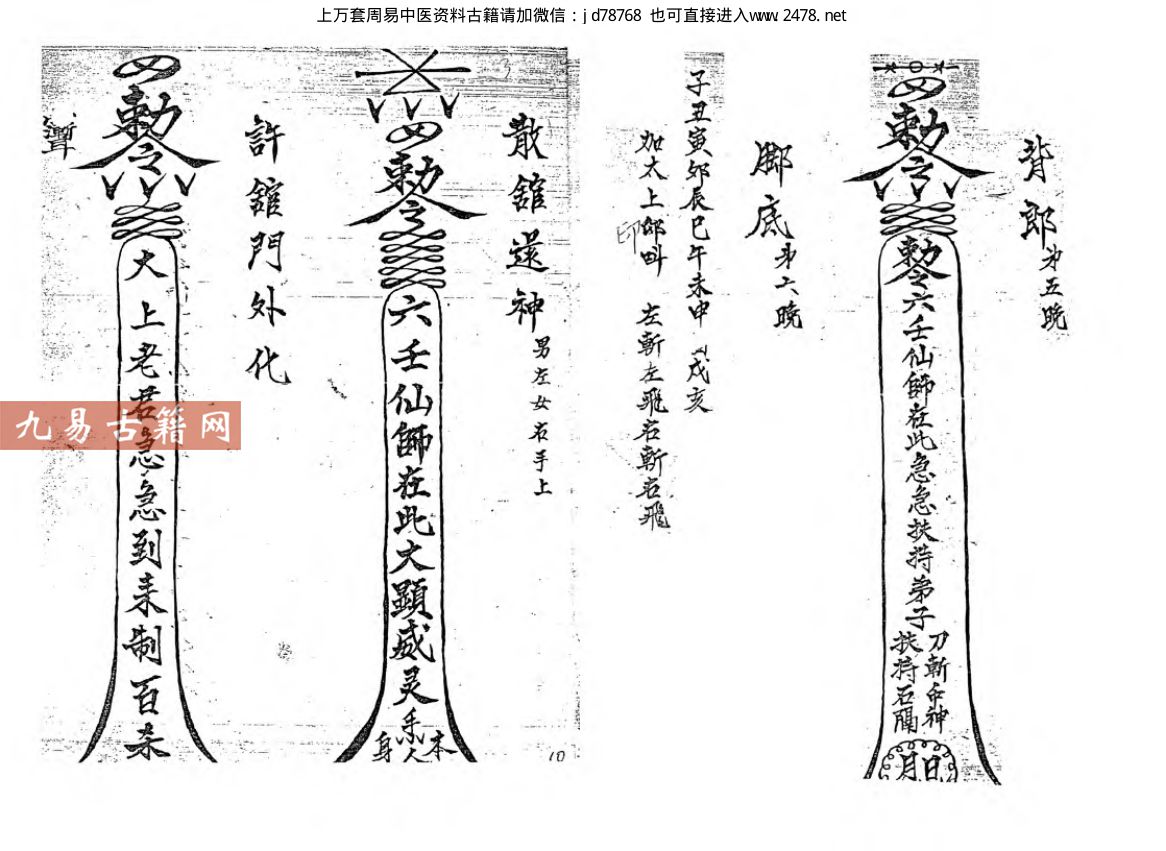 上万套周易中医资料古籍请加微信：jd78768 也可直接进入www.2478.net
背郎 弟五晚
敕令
敕令六壬仙師在此急急扶持弟子
刀斬
神
扶持石
日月
脚底 弟六晚
子丑寅卯辰巳午未申 戌亥
加太上
印
左斬左飛右斬右飛
散舘送神 男左女右手上
敕令
六壬仙師在此大顯威灵
本人身
許舘門外化
敕令
太上老君急急到来制百杀
九易古籍网
10